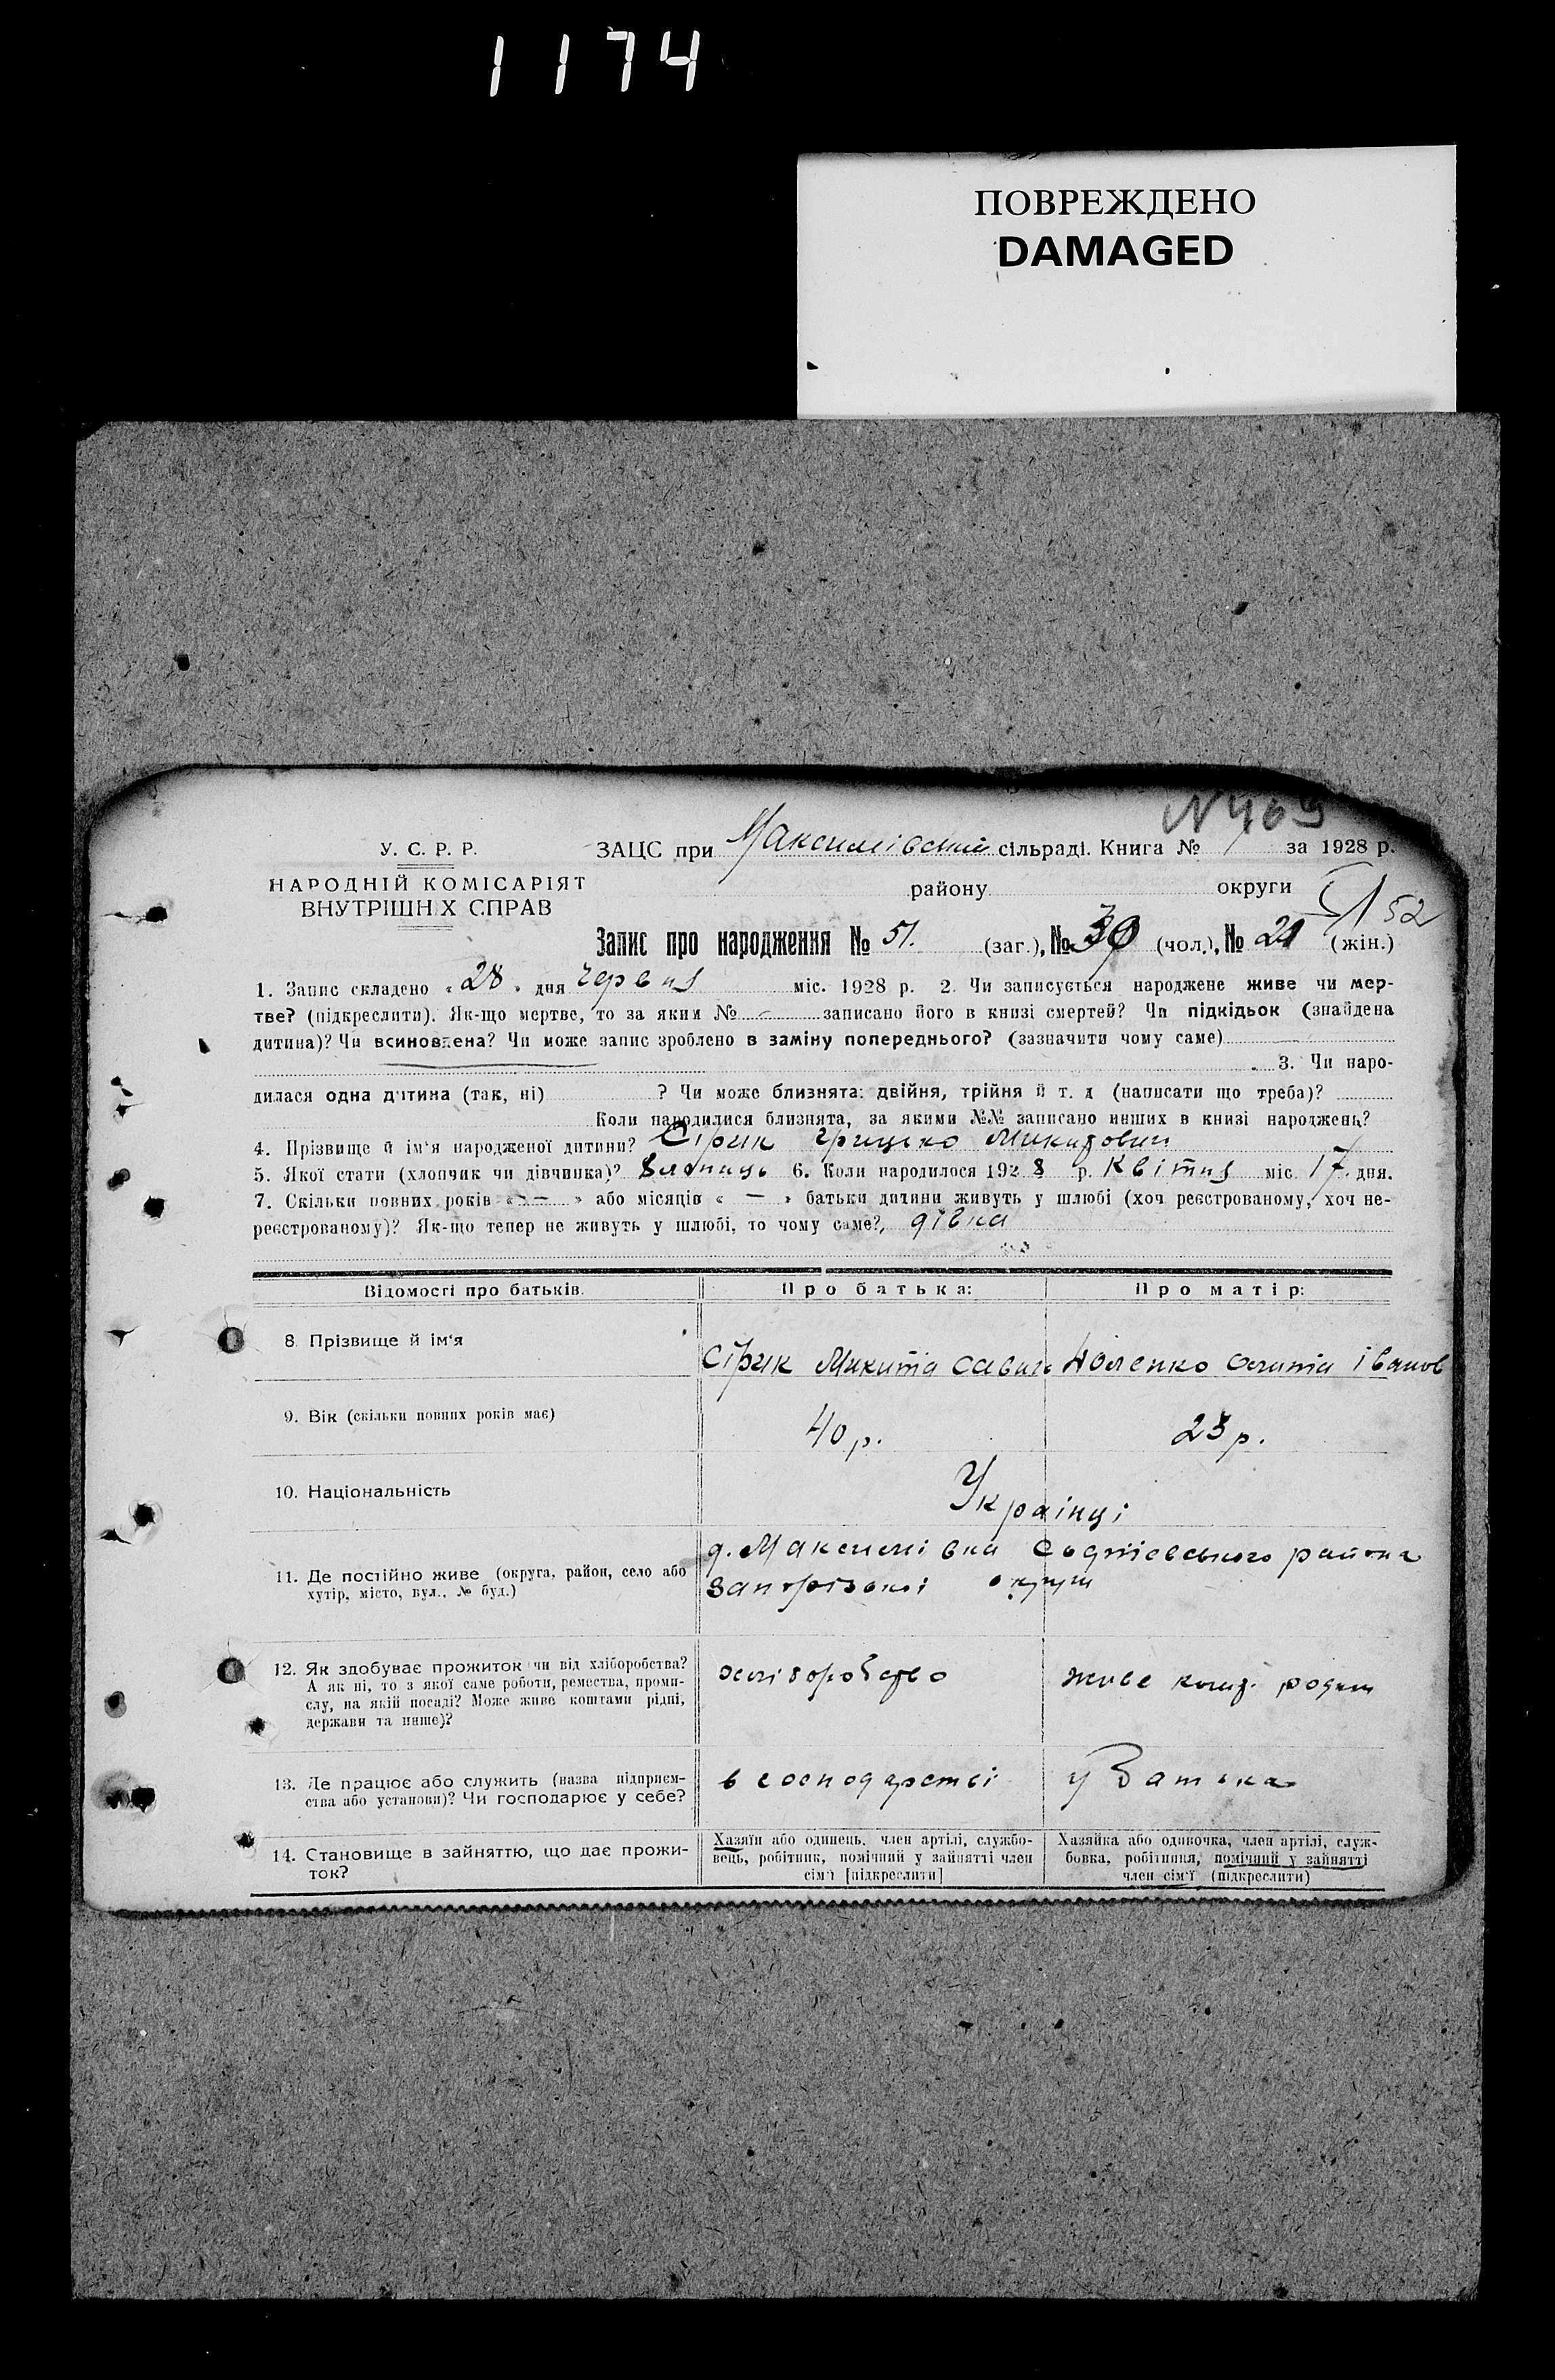 1174
ПОВРЕЖДЕНО
DAMAGED
N 469
У. С. Р. Р.
НАРОДНІЙ КОМІСАРІЯТ
ВНУТРІШН Х СПРАВ
ЗАЦС при Максимівській сільраді. Книга № за 1928 р.
району округи
52
Запис про народження № 51. (заг.), № 30 (чол.), № 21 (жін.)
1. Запис складено « 28 » дня червня міс. 1928 р. 2. Чи записується народжене живе чи мер-
тве? (підкреслити). Як-що мертве, то за яким № — записано його в книзі смертей? Чи підкідьок (знайдена
дитина)? Чи всиновлена? Чи може запис зроблено в заміну попереднього? (зазначити чому саме)
3. Чи наро-
дилася одна дитина (так, ні) ? Чи може близнята: двійня, трійня й т. д (написати що треба)?
Коли народилися близнята, за якими №№ записано инших в книзі народжень?
4. Прізвище й ім'я народженої дитини? Сірик Грицько Микитович
5. Якої стати (хлопчик чи дівчинка)? 6. Коли народилося 1928 р. Квітня міс. 17 дня.
7. Скільки повних років « — » або місяців « — » батьки дитини живуть у шлюбі (хоч реєстрованому, хоч не-
реєстрованому)? Як-що тепер не живуть у шлюбі, то чому саме? дівка
Відомості про батьків. Про батька: Про матір:
8. Прізвище й ім'я
Сірик Микита Савич Іванов
9. Вік (скільки повних років має)
40 р. 23 р.
10. Національність
Українці
11. Де постійно живе (округа, район, село або
хутір, місто, вул., № буд.)
д. Максимівка района
Запорізької округи
12. Як здобуває прожиток чи від хліборобства?
А як ні, то з якої саме роботи, ремества, проми-
слу, на якій посаді? Може живе коштами рідні,
держави та инше)?
хліборобство живе кошт. родини
13. Де працює або служить (назва підприєм-
ства або установи)? Чи господарює у себе?
в господарстві у Батька
14. Становище в зайняттю, що дає прожи-
ток?
Хазяїн або одинець, член артілі, службо-
вець, робітник, помічний у зайнятті член
сім'ї [підкреслити]
Хазяйка або одиночка, член артілі, служ-
бовка, робітниця, помічний у зайнятті
член сім'ї (підкреслити)